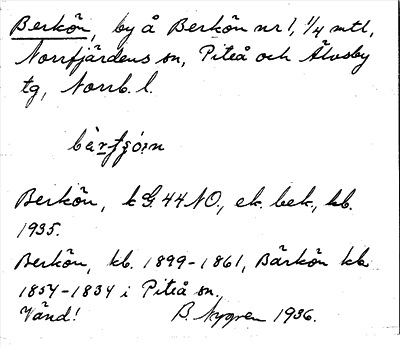 Berkön, by å Berkön nr 1, 1/4 mtl,
Norrfjärdens sn, Piteå och Älvsby
tg, Norrb. l.
Berkön, k G. 44 NO., ek. bek., kb.
1935.
Berkön, kb. 1899-1861, Bärkön kb.
1857-1834 i Piteå sn.
Vänd! B. Nygren 1936.